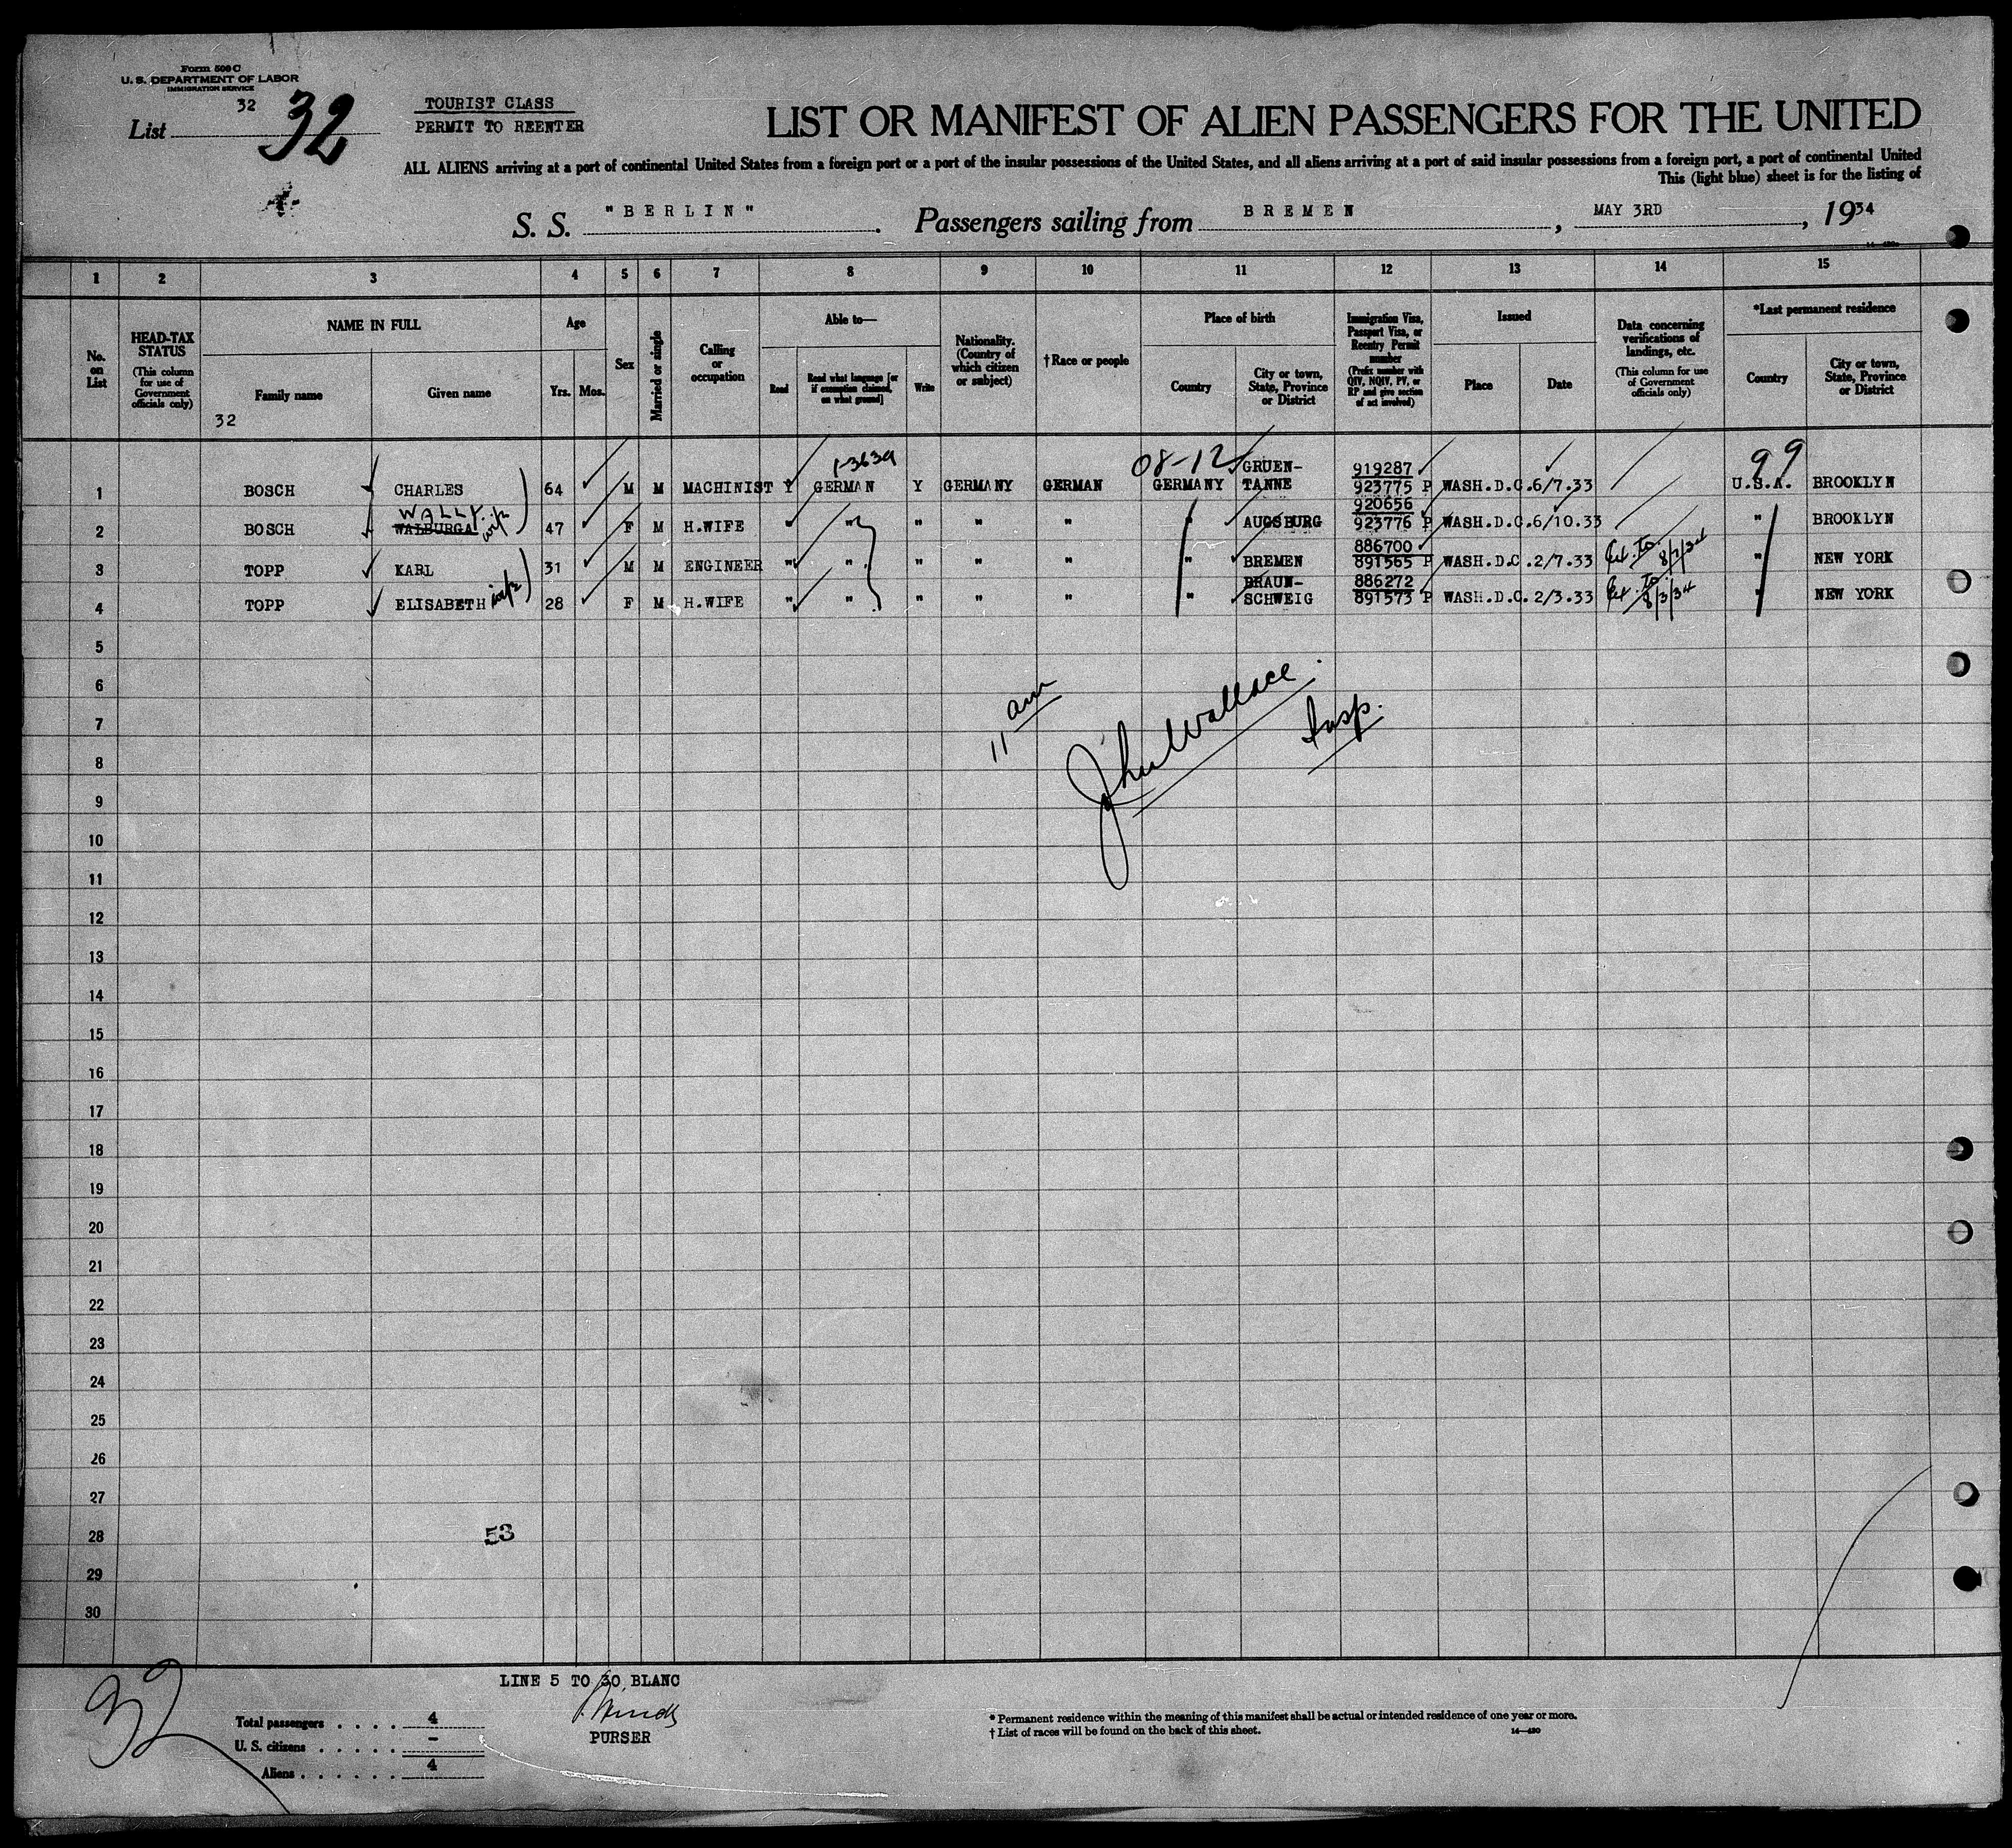 Form 500 C
U. S. DEPARTMENT OF LABOR
IMMIGRATION SERVICE
List 32
32
TOURIST CLASS
PERMIT TO REENTER
LIST OR MANIFEST OF ALIEN PASSENGERS FOR THE UNITED
ALL ALIENS arriving at a port of continental United States from a foreign port or a port of the insular possessions of the United States, and all aliens arriving at a port of said insular possessions from a foreign port, a port of continental United
This (light blue) sheet is for the listing of
S. S. "BERLIN". Passengers sailing from BREMEN, MAY 3RD, 1934
1 2 3 4 5 6 7 8 9 10 11 12 13 14 15
No. on List
HEAD-TAX STATUS
(This column for use of Government officials only)
NAME IN FULL
Family name
Given name
32
Age
Yrs. Mos.
Sex
Married or single
Calling or occupation
Able to—
Read
Read what language [or if exemption claimed, on what ground]
Write
Nationality. (Country of which citizen or subject)
†Race or people
Place of birth
Country
City or town, State, Province or District
Immigration Visa, Passport Visa, or Reentry Permit number
(Prefix number with QIV, NQIV, PV, or RP and give section of act involved)
Issued
Place
Date
Data concerning verifications of landings, etc.
(This column for use of Government officials only)
*Last permanent residence
Country
City or town, State, Province or District
1-3639 08-12 GRUEN- 919287 99
1 BOSCH CHARLES 64 M M MACHINIST Y GERMAN Y GERMANY GERMAN GERMANY TANNE 923775 P WASH.D.C. 6/7.33 U.S.A. BROOKLYN
WALLY 920656
2 BOSCH WALBURGA wife 47 F M H.WIFE " " " " " " AUGSBURG 923776 P WASH.D.C. 6/10.33 " BROOKLYN
886700
3 TOPP KARL 31 M M ENGINEER " " " " " " BREMEN 891565 P WASH.D.C. 2/7.33 Ext. to 8/7/34 " NEW YORK
BRAUN- 886272
4 TOPP ELISABETH wife 28 F M H.WIFE " " " " " " SCHWEIG 891573 P WASH.D.C. 2/3.33 Ext. to 8/3/34 " NEW YORK
5
6
7
11 am John Wallace Insp.
8
9
10
11
12
13
14
15
16
17
18
19
20
21
22
23
24
25
26
27
28
53
29
30
LINE 5 TO 30 BLANC
PURSER
32
Total passengers . . . . 4
U. S. citizens . . . . . -
Aliens . . . . . . 4
* Permanent residence within the meaning of this manifest shall be actual or intended residence of one year or more.
† List of races will be found on the back of this sheet.
14—430